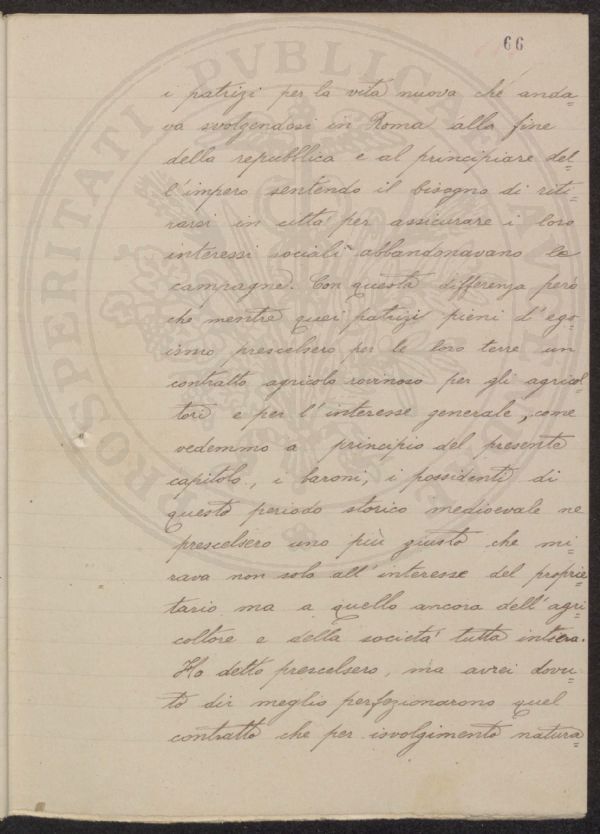 66
i patrizi per la vita nuova che anda=
va svolgendosi in Roma alla fine
della repubblica e al principiare del=
l'impero sentendo il bisogno di riti=
rarsi in città per assicurare i loro
interessi sociali abbandonavano le
campagne. Con questa differenza però
che mentre quei patrizi pieni d'ego=
ismo prescelsero per le loro terre un
contratto agricolo rovinoso per gli agricol=
tori e per l'interesse generale, come
vedemmo a principio del presente
capitolo, i baroni, i possidenti di
questo periodo storico medioevale ne
prescelsero uno più giusto che mi=
rava non solo all'interesse del proprie=
tario ma a quello ancora dell'agri=
coltore e della società tutta intiera.
Ho detto prescelsero, ma avrei dovu=
to dir meglio perfezionarono quel
contratto che per isvolgimento natura=
PROSPERITATI PVBLICAE AVGENDAE